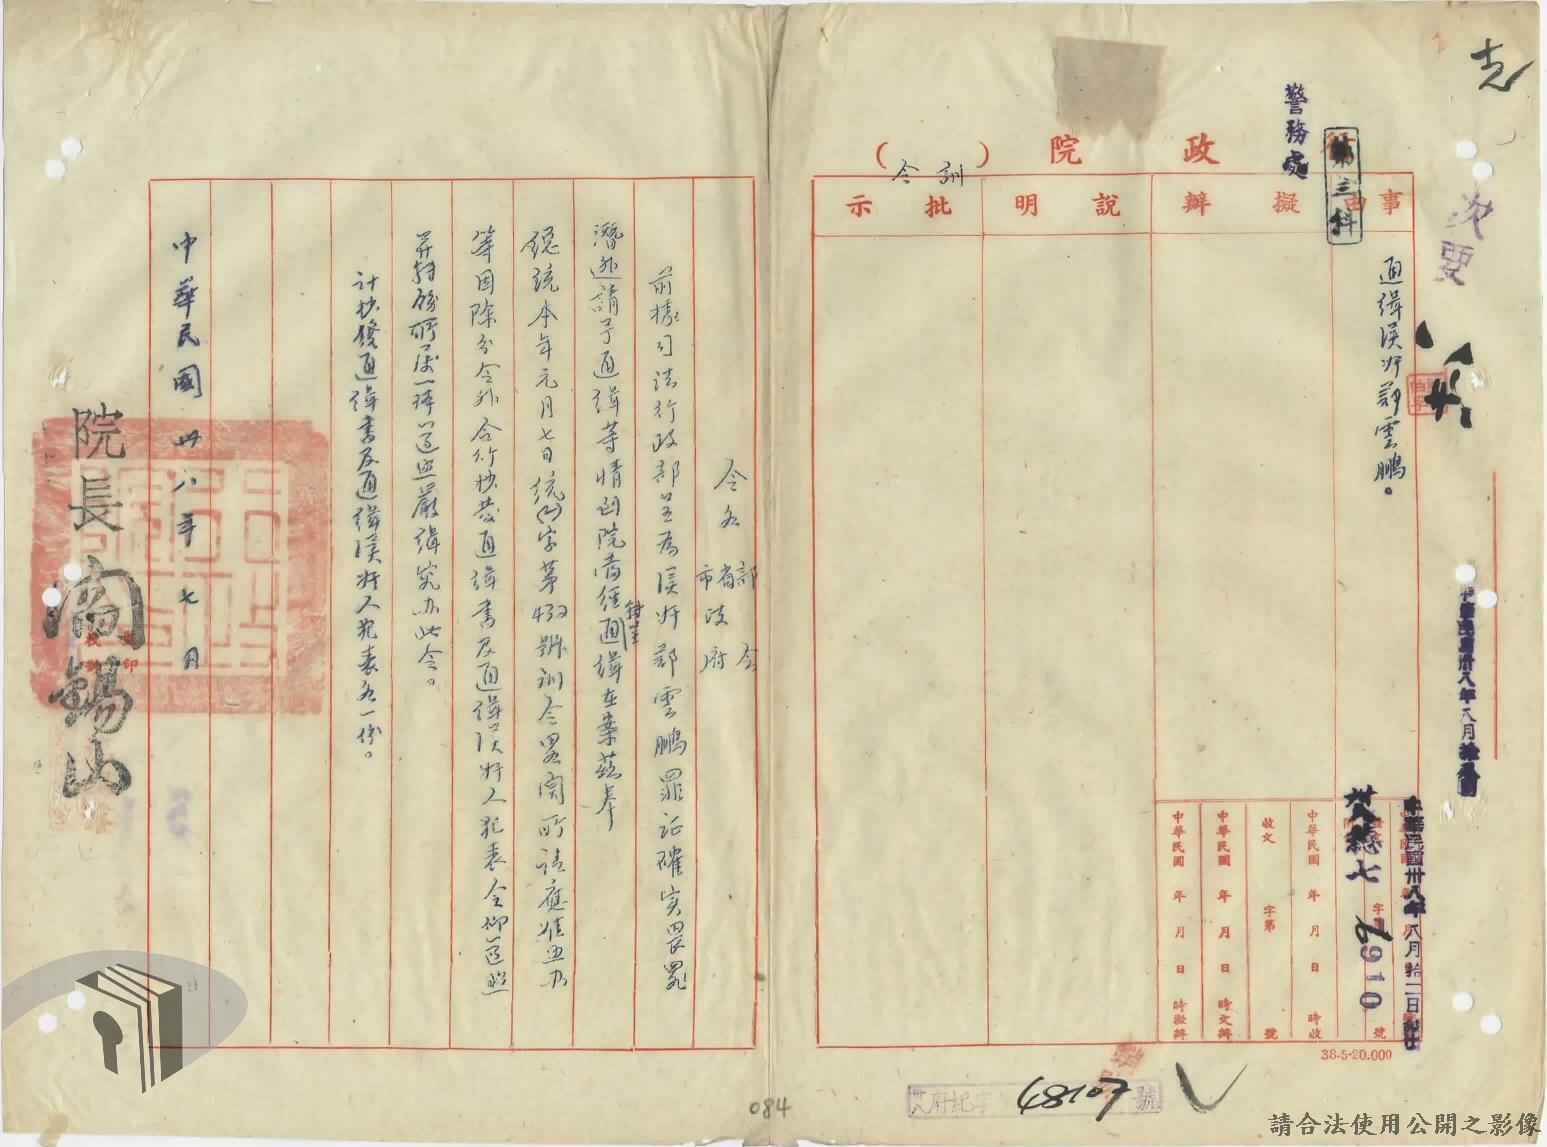 行政院（訓令）
警務處
第三科
事由
擬辦
說明
批示
通緝漢奸鄒雲鵬。
中華民國 年 月 日 時收
收文 字第 號
中華民國 年 月 日 時交辦
中華民國 年 月 日 時擬辦
中華民國卅八年八月拾二日
7910
38-5-20.000
卅八府紀字 48107 號
令各部會省市政府
前據司法行政部呈為漢奸鄒雲鵬罪証確實畏罪
潛逃請予通緝等情到院當經轉呈通緝在案茲奉
總統本年元月七日統(一)字第432號訓令畧開所請應准照办
等因除分令外合行抄發通緝書及通緝漢奸人犯表令仰遵照
并轉飭所屬一体遵照嚴緝究办此令。
計抄發通緝書及通緝漢奸人犯表各一份。
中華民國卅八年七月 日
院長閻錫山
084
請合法使用公開之影像